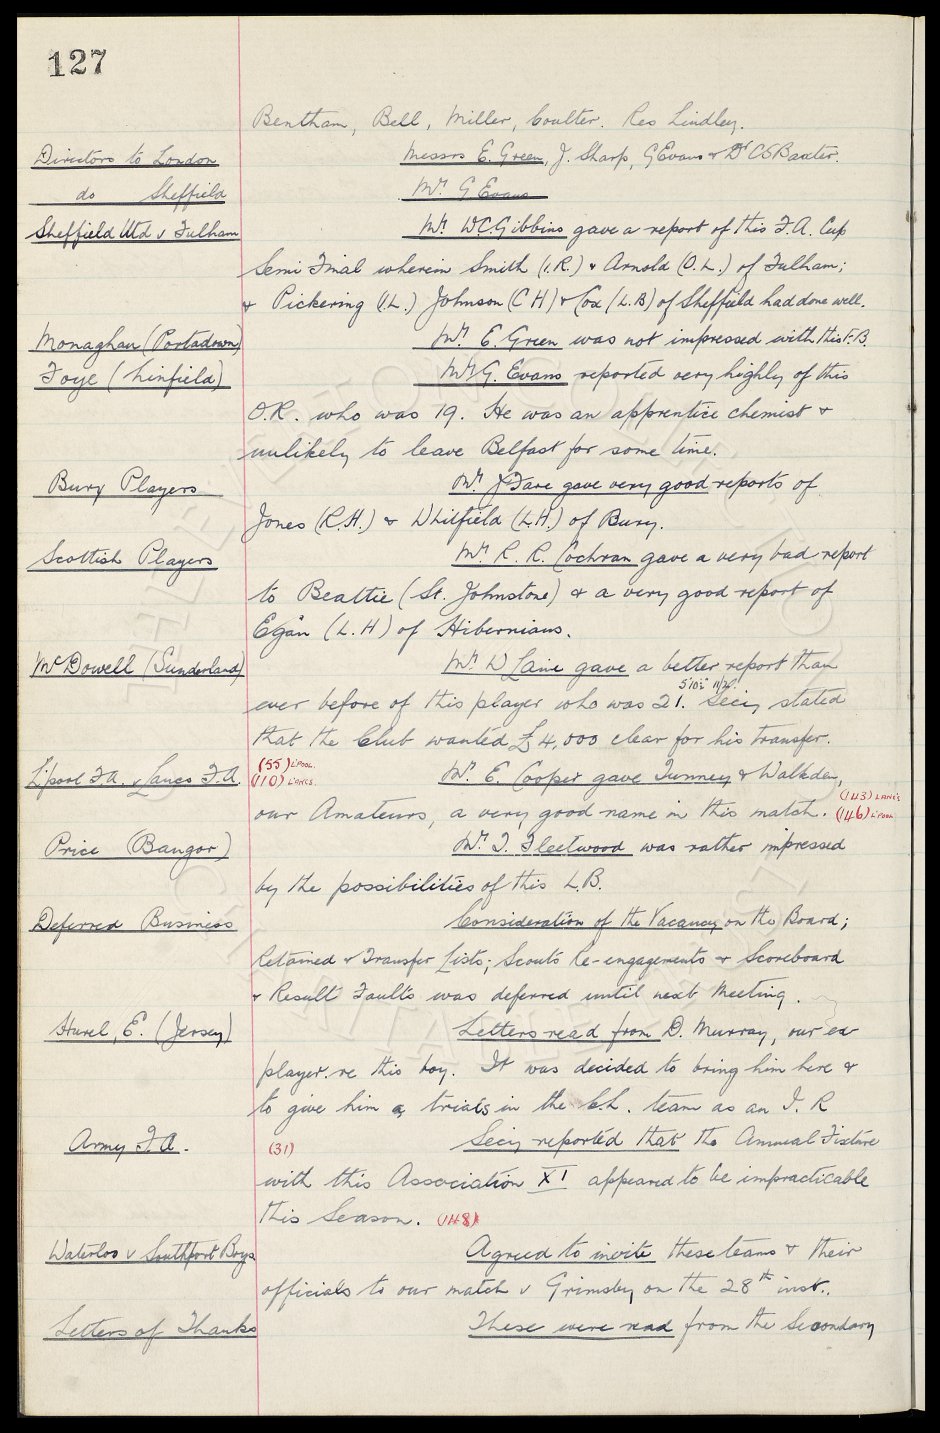 127
Bentham, Bell, Miller, Coulter. Res Lindley.
Directors to London Messrs E. Green, J. Sharp, G Evans & Dr C S Baxter.
do Sheffield Mr. G Evans
Sheffield Utd v Fulham Mr. W.C. Gibbins gave a report of this F.A. Cup
Semi Final wherein Smith (I.R.) & Arnold (O.L.) of Fulham;
& Pickering (I.L.) Johnson (C H) & Cox (L.B) of Sheffield had done well.
Monaghan (Portadown) Mr. E. Green was not impressed with this F.B.
Foye (Linfield) Mr G. Evans reported very highly of this
O.R. who was 19. He was an apprentice chemist &
unlikely to leave Belfast for some time.
Bury Players Mr. J Fare gave very good reports of
Jones (R.H.) & Whitfield (L.H.) of Bury.
Scottish Players Mr. R. R. Cochran gave a very bad report
to Beattie (St. Johnstone) & a very good report of
Egan (L.H) of Hibernians.
McDowell (Sunderland) Mr. W Laine gave a better report than
5'10½" 11/2
ever before of this player who was 21. Secy stated
that the Club wanted £4,000 clear for his transfer.
L'pool F.A. v Lancs F.A. (55) L'POOL. (110) LANCS. Mr. E. Cooper gave Tunney & Walkden,
our Amateurs, a very good name in this match. (143) LANCS (146) L'POOL
Price (Bangor) Mr. T. Fleetwood was rather impressed
by the possibilities of this L.B.
Deferred Business Consideration of the Vacancy on the Board;
Retained & Transfer Lists; Scouts Re-engagements & Scoreboard
& Result Faults was deferred until next Meeting.
Hurel, E. (Jersey) Letters read from D. Murray, our ex
player. re this boy. It was decided to bring him here &
to give him a trials in the C.L. team as an I.R
Army F.A. (31) Secy reported that the Annual Fixture
with this Association XI appeared to be impracticable
this Season. (148)
Waterloo v Southport Boys Agreed to invite these teams & their
officials to our match v Grimsby on the 28th inst.
Letters of Thanks These were read from the Secondary